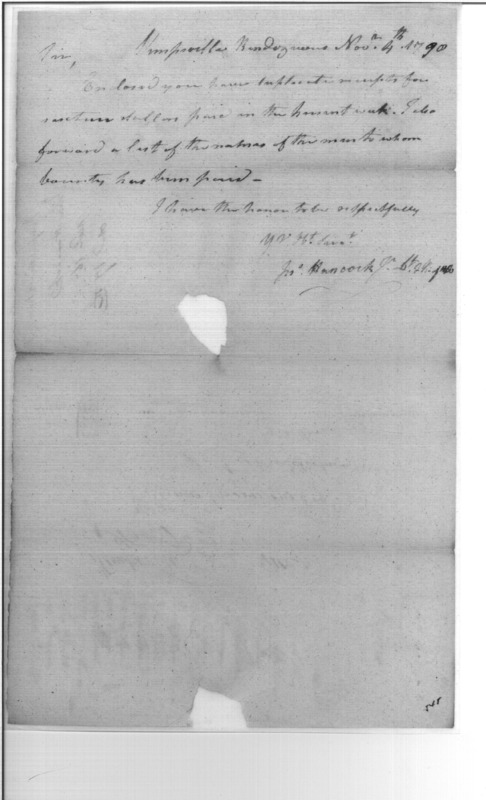 Sir, Rendezvous Nov.r 4th 1798
Enclosed you have duplicate receipts for
sixteen dollars paid in the present week. I also
forward a list of the names of the men to whom
bounty has been paid –
I have the honor to be respectfully
Yr. Ht. Servt.
Jno. Hancock